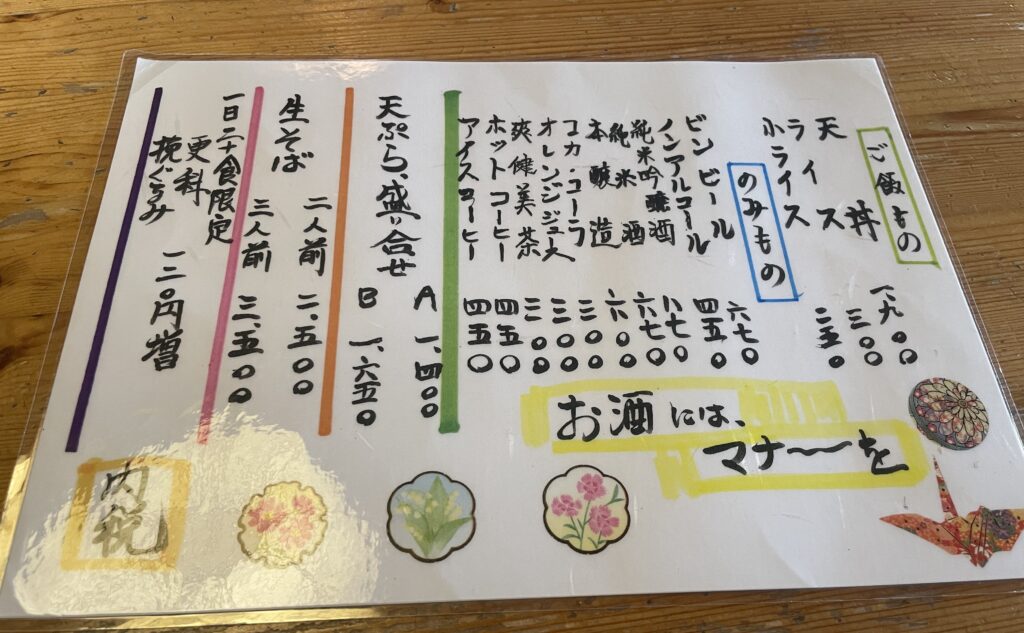 ご飯もの
天丼 一、九〇〇
ライス 三〇〇
小ライス 二五〇
のみもの
ビンビール 六七〇
ノンアルコール 四五〇
純米吟醸酒 八七〇
純米酒 六七〇
本醸造 六〇〇
コカ・コーラ 三〇〇
オレンジジュース 三〇〇
爽健美茶 三〇〇
ホットコーヒー 四五〇
アイスコーヒー 四五〇
お酒には、
マナ〜を
天ぷら、盛り合せ
A 一、四〇〇
B 一、六五〇
生そば
二人前 二、五〇〇
三人前 三、五〇〇
一日二十食限定
更科
挽ぐるみ 一二〇円増
内税